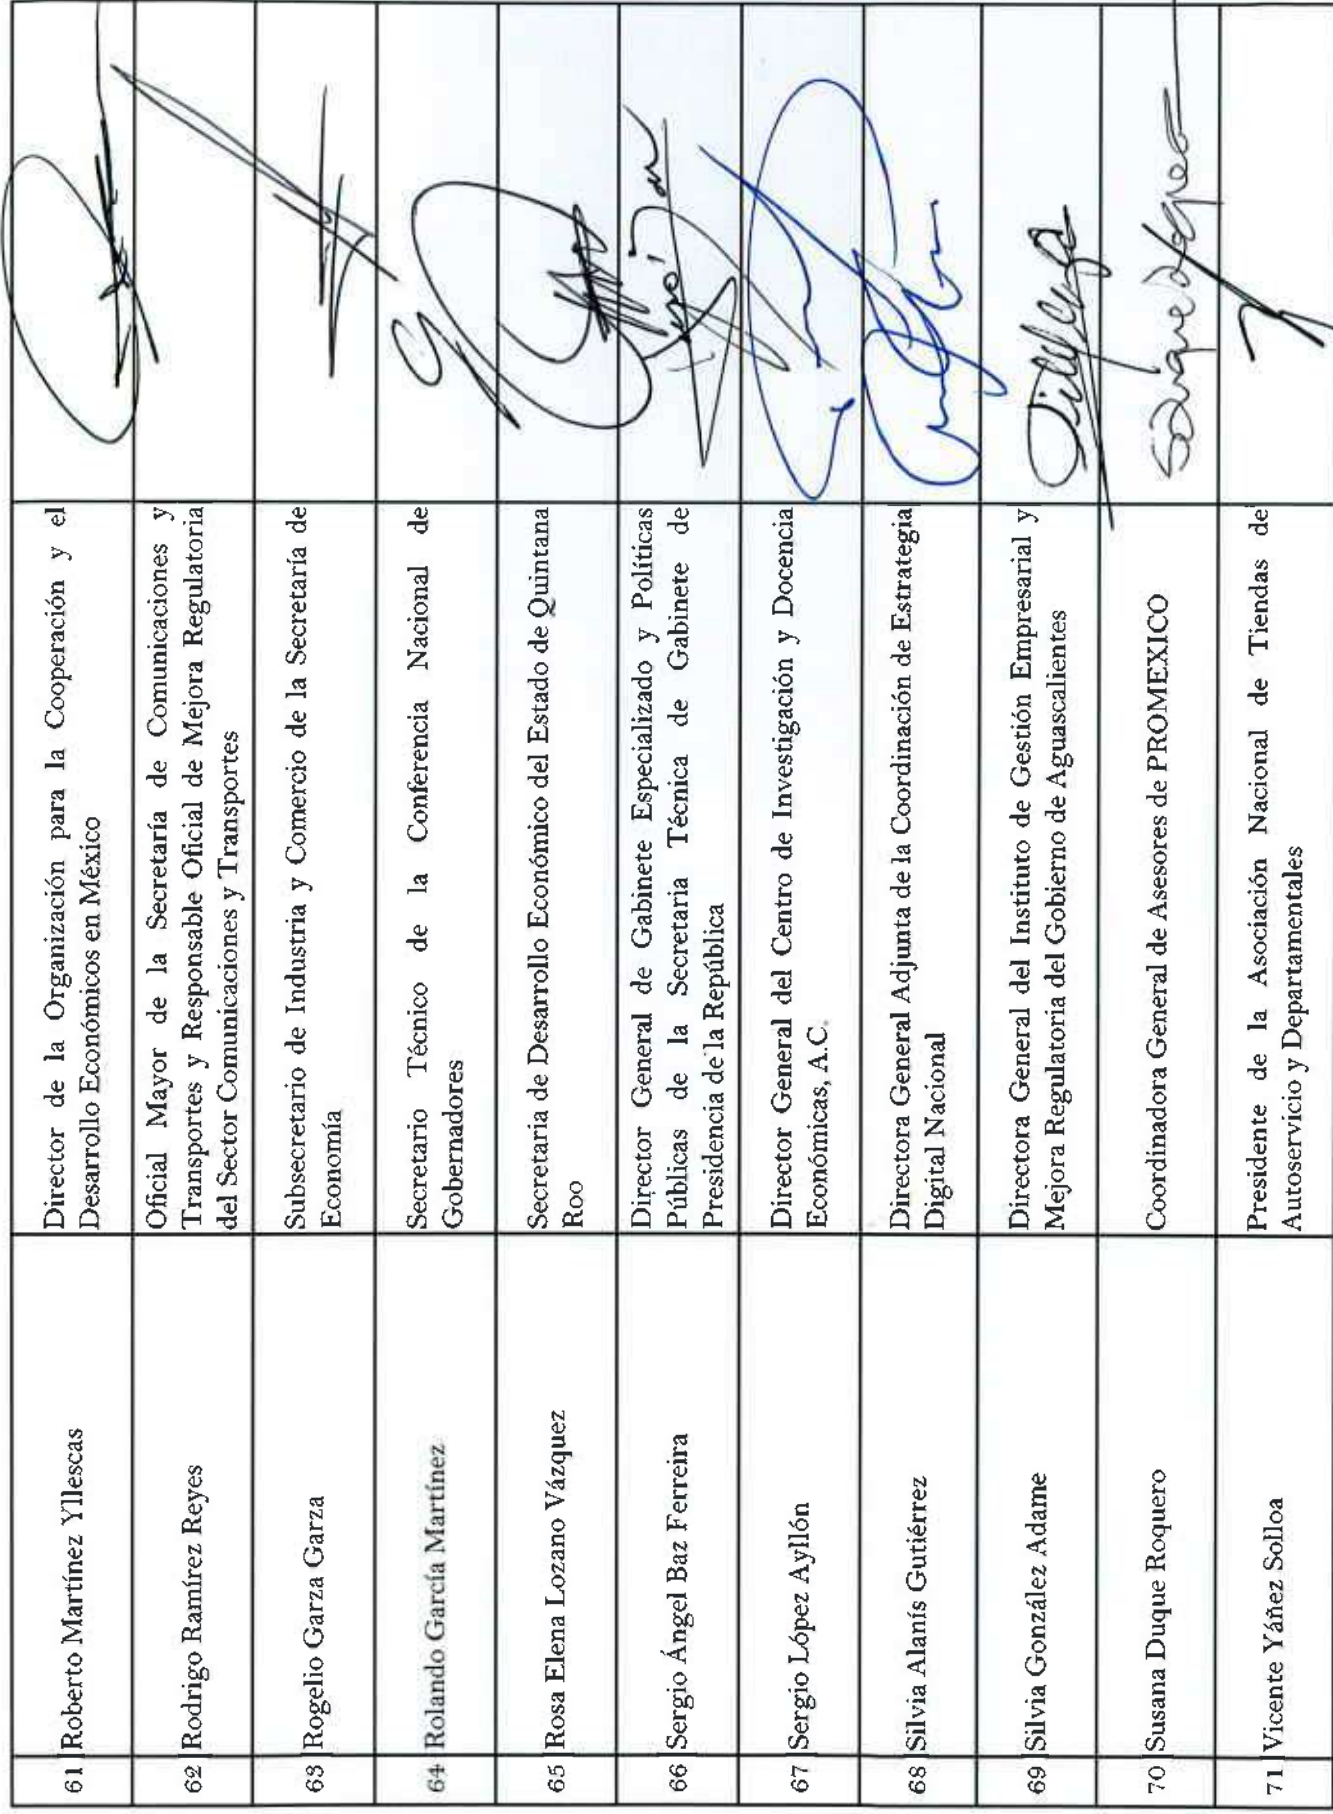 61 Roberto Martínez Yllescas
Director de la Organización para la Cooperación y el
Desarrollo Económicos en México
62 Rodrigo Ramírez Reyes
Oficial Mayor de la Secretaría de Comunicaciones y
Transportes y Responsable Oficial de Mejora Regulatoria
del Sector Comunicaciones y Transportes
63 Rogelio Garza Garza
Subsecretario de Industria y Comercio de la Secretaría de
Economía
64 Rolando García Martínez
Secretario Técnico de la Conferencia Nacional de
Gobernadores
65 Rosa Elena Lozano Vázquez
Secretaria de Desarrollo Económico del Estado de Quintana
Roo
66 Sergio Ángel Baz Ferreira
Director General de Gabinete Especializado y Políticas
Públicas de la Secretaria Técnica de Gabinete de
Presidencia de la República
67 Sergio López Ayllón
Director General del Centro de Investigación y Docencia
Económicas, A.C.
68 Silvia Alanís Gutiérrez
Directora General Adjunta de la Coordinación de Estrategia
Digital Nacional
69 Silvia González Adame
Directora General del Instituto de Gestión Empresarial y
Mejora Regulatoria del Gobierno de Aguascalientes
70 Susana Duque Roquero
Coordinadora General de Asesores de PROMEXICO
71 Vicente Yáñez Solloa
Presidente de la Asociación Nacional de Tiendas de
Autoservicio y Departamentales